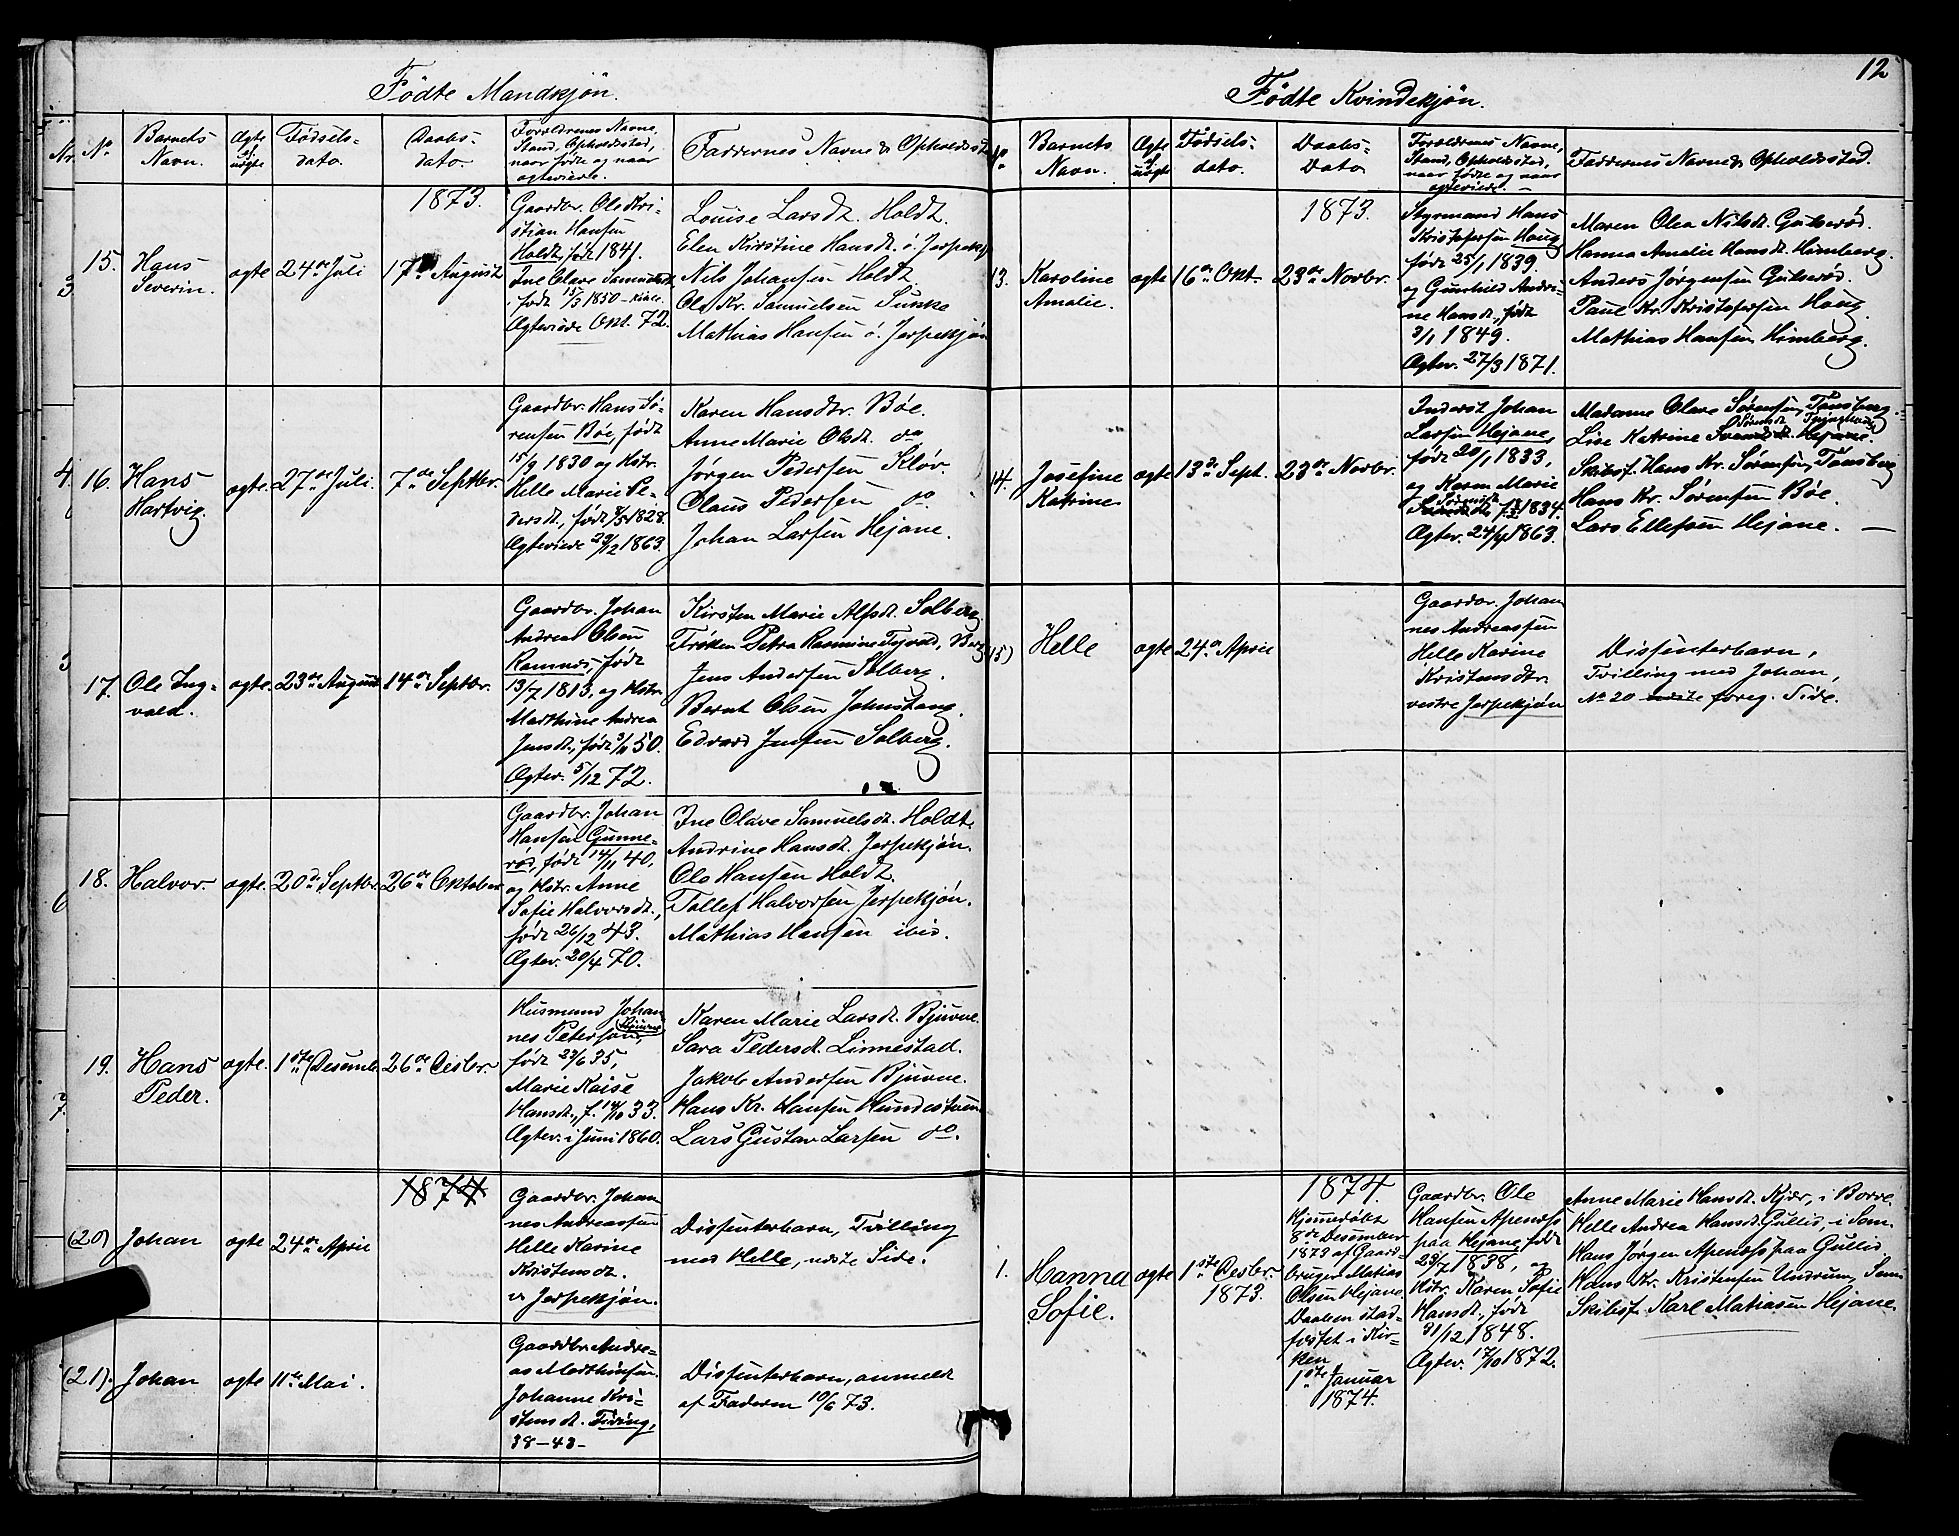 12
Fødte Mandkjøn.
Nr.
No
Barnets
Navn.
Ægte
el.
uægte
Fødsels-
dato.
Daabs-
dato.
Forældrenes Navne,
Stand, Opholdssted,
naar fødte og naar
ægteviede.
Faddernes Navne & Opholdsst
1873.
3
15.
Hans
Severin.
ægte
24de Juli
17de August
Gaardbr. Ole Kri-
stian Hansen
Holdt, født 1841.
Ine Olave Samuelsdt.
født 15/3 1850
Ægteviede Okt. 72.
Louise Larsdt. Holdt.
Elen Kirstine Hansdt. ø. Jerpekjøn
Nils Johansen Holdt
Ole Kr. Samuelsen Sukke
Mathias Hansen ø. Jerpekjøn
4
16.
Hans
Hartvig.
ægte.
27de Juli.
7de Septbr.
Gaardbr. Hans Sø-
rensen Bøe, født
15/9 1830 og Hstr.
Helle Marie Pe-
dersdt., født 8/5 1828.
Ægteviede 29/12 1863.
Karen Hansdtr. Bøe.
Anne Marie Olsdt. do
Jørgen Pedersen Kløv.
Claus Pedersen do.
Johan Larsen Hejane.
17.
Ole Ing-
vald.
ægte.
23de August
14de Septbr.
Gaardbr. Johan
Andreas Olsen
Ramnes, født
13/7 1813, og Hstr.
Marthine Andrea
Jensdt., født 3/11 50.
Ægtev. 5/12 72.
Kirsten Marie Alfsdt. Solberg
Frøken Petra Rasmine Tyvold, Berg
Jens Andersen Solberg.
Bernt Olsen Johnstang.
Edvard Jensen Solberg.
6
18.
Halvor.
ægte.
20de Septbr.
26de Oktober
Gaardbr. Johan
Hansen Gunne-
rød, født 14/11 40,
og Hstr. Anne
Sofie Halvorsdt.,
født 26/12 43.
Ægtev. 20/4 70.
Ine Olave Samuelsdt. Holdt.
Andrine Hansdt. Jerpekjøn.
Ole Hansen Holdt.
Tollef Halvorsen Jerpekjøn.
Mathias Hansen ibid.
7.
19.
Hans
Peder.
ægte.
1ste Desemb.
26de Desbr.
Husmand Johan-
nes Petersen, Bjuvne
født 23/6 35,
Marie Kaise
Hansdt., f. 14/10 33.
Ægtev. i Juni 1860.
Karen Marie Larsdt. Bjuvne.
Sara Pedersdt. Linnestad.
Jakob Andersen Bjuvne.
Hans Kr. Hansen Hundestuen
Lars Gustav Larsen do.
1874
(20)
Johan
ægte
24de April
Gaardbr. Johan-
nes Andreassen
Helle Karine
Kristensdt.
v. Jerpekjøn.
Dissenterbarn, Tvilling
med Helle, næste Side.
(21).
Johan
ægte
11te Mai.
Gaardbr. Andre-
as Marthinsen.
Johanne Kri-
stensdt. Firing,
38-43-
Dissenterbarn, anmeldt
af Faderen 10/6 73.
Fødte Kvindekjøn.
No
Barnets
Navn.
Ægte
el.
uægte
Fødsels-
dato.
Daabs-
Dato
Forældrenes Navne,
Stand, Opholdssted,
naar fødte og naar
ægteviede.
Faddernes Navne & Opholdssted.
1873.
13.
Karoline
Amalie.
ægte
16de Okt.
23de Novbr.
Styrmand Hans
Kristofersen Haug
født 25/1 1839.
og Gunhild Andri-
ne Hansdt., født
3/1 1849.
Ægtev. 27/3 1871.
Maren Olea Nilsdt. Gulserød.
Hanna Amalie Hansdt. Himberg.
Anders Jørgensen Gulserød.
Paul Kr. Kristofersen Haug.
Mathias Hansen Himberg.
14.
Josefine
Katrine
ægte
13de Sept.
23de Novbr.
Inderst Johan
Larsen Hejane,
født 20/1 1833,
og Karen Marie
Sørensdt. 1834.
Ægtev. 24/4 1863.
Madame Olave Sørensen, Tønsberg.
Lise Katrine Sørensdt. Hejane.
Skibsf. Hans Kr. Sørensen, Tønsberg
Hans Kr. Sørensen Bøe.
Lars Ellefsen Hejane.
(15)
Helle
ægte
24de April
Gaardbr. Johan
nes Andreassen
Helle Karine
Kristensdtr.
vestre Jerpekjøn
Dissenterbarn,
Tvilling med Johan,
No 20 næste foreg. Side.
1.
Hanna
Sofie.
ægte
1ste Desbr.
1873.
1874.
Hjemmedøbt
8de Desember
1873 af Gaard-
bruger Matias
Olsen Hejane.
Daaben stad-
fæstet i Kir-
ken
1ste Januar
1874.
Gaardbr. Ole
Hansen Apenæss
paa Hejane, født
23/7 1838, og
Hstr. Karen Sofie
Hansdt., født
31/12 1848.
Ægtev. 17/10 1872.
Anne Marie Hansdt. Kjær, i Borre.
Helle Andrea Hansdt. Gullis, i Sem.
Hans Jørgen Apenæss paa Gullis.
Hans Kr. Kristensen Undrum, Sem
Skibsf. Karl Matiasen Hejane.